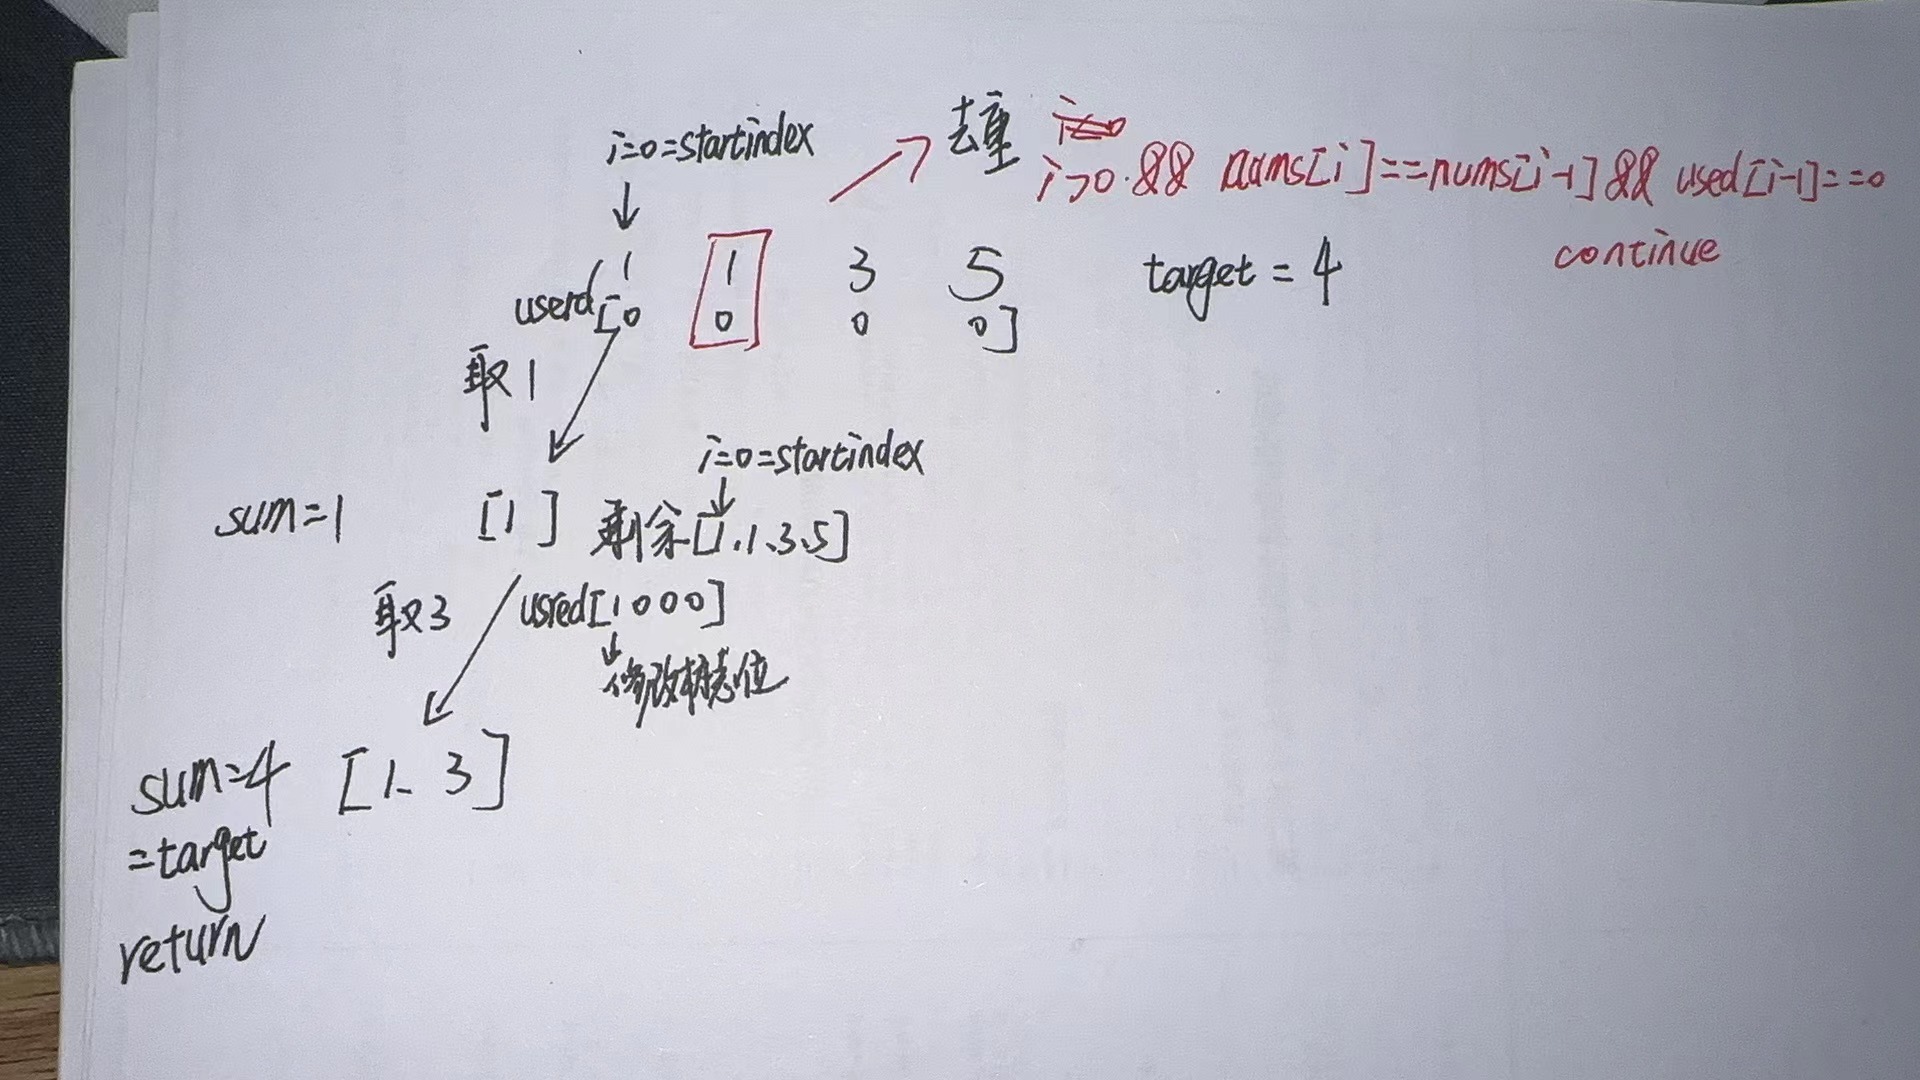 i=0=startindex
去重
i=0
i>0 && nums[i]==nums[i-1] && used[i-1]==0
continue
1 1 3 5
target = 4
userd[0 0 0 0]
取1
i=0=startindex
sum=1 [1] 剩余[1、1、3、5]
取3
usred[1000]
修改标志位
sum=4 [1、3]
=target
return